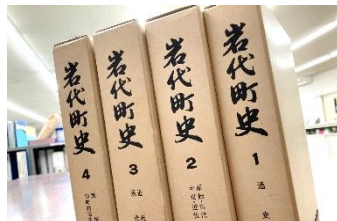 岩代町史
4
岩代町史
3
岩代町史
2
岩代町史
1
通史